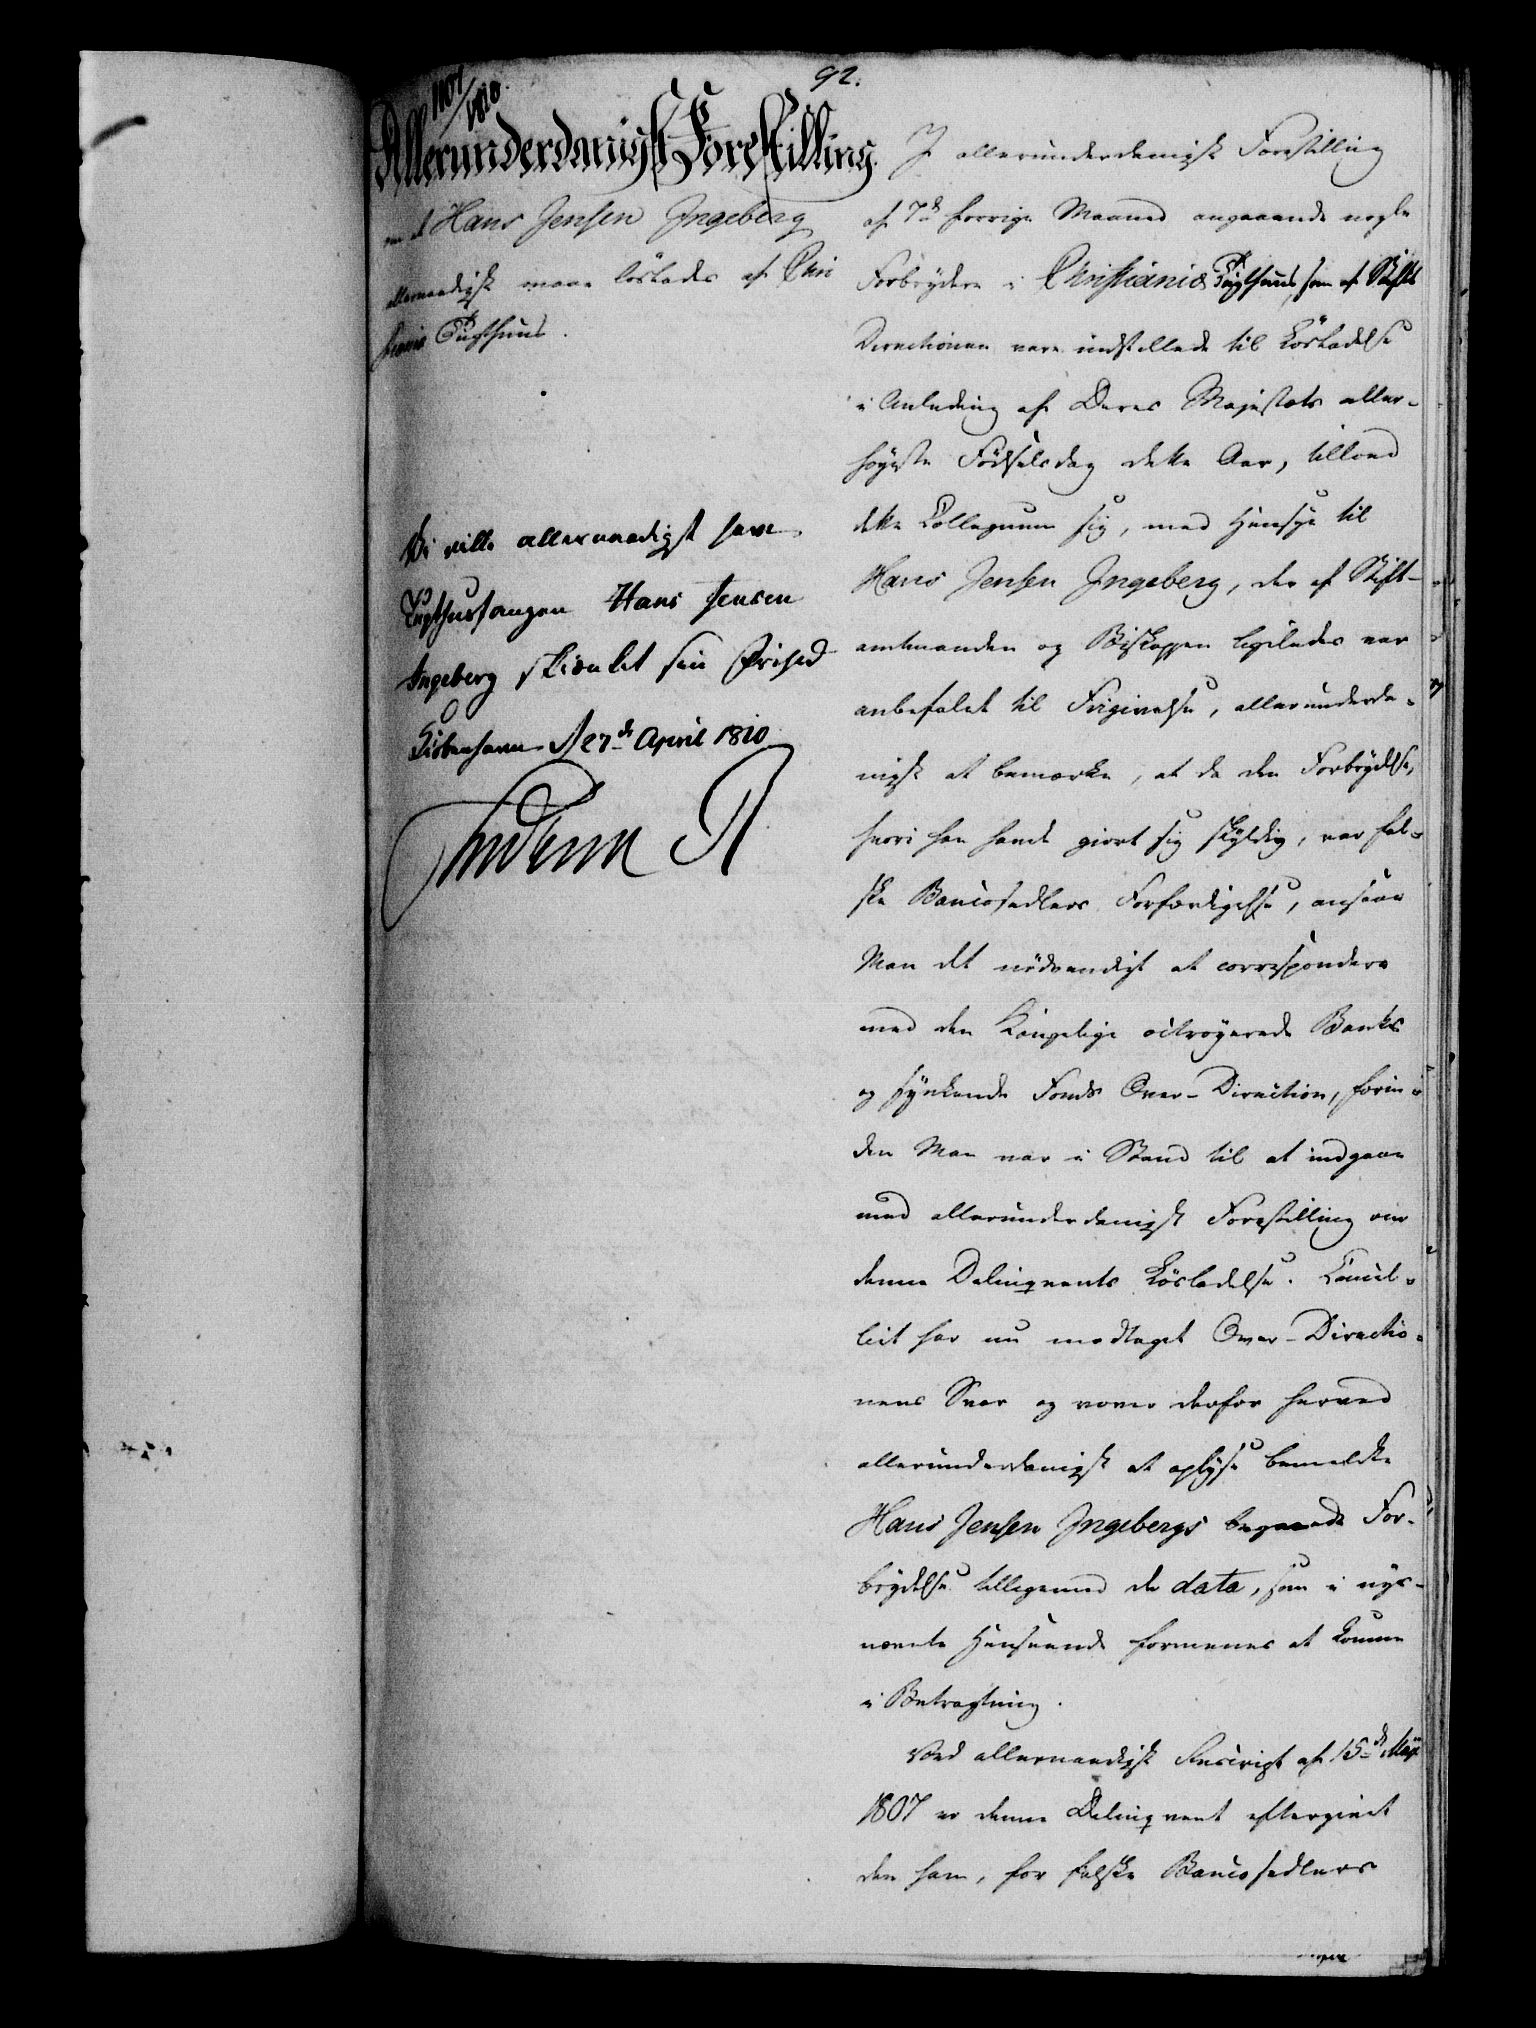 92.
1107/1810.
Allerunderdanigst Forestilling
om at Hans Jensen Ingeberg
allernaadigst maae löslades af Chri
stiania Tugthuus.
Vi ville allernaadigst have
Tugthusfangen Hans Jensen
Ingeberg skienket sin Frihed
Kiöbenhavn d 27de April 1810
Frederik R
I allerunderdanigst Forestilling
af 7de forrige Maaned angaaende nogle
Forbrydere i Christiania Tugthuus, som af Stifts
Directionen vare indstillede til Lösladelse
i Anledning af Deres Majestæts aller-
höyeste Födselsdag dette Aar, tillod
dette Collegium sig, med Hensyn til
Hans Jensen Ingeberg, der af Stift-
amtmanden og Biskoppen ligeledes var
anbefalet til Frigivelse, allerunderda-
nigst at bemærke, at da den Forbrydelse,
hvori han havde giort sig skyldig, var fal-
ske Bancosedlers Forfærdigelse, ansaae
Man det nödvendigt at correspondere
med den Kongelige octroyerede Banks
og synkende Fonds Over-Direction, forin-
den Man var i Stand til at indgaae
med allerunderdanigst Forestilling om
denne Delinqvents Lösladelse. Cancel-
liet har nu modtaget Over-Directio-
nens Svar og vover derfor herved
allerunderdanigst at oplyse bemeldte
Hans Jensen Ingebergs begaaede For-
brydelse tilligemed de data, som i nys-
nævnte Henseende formenes at komme
i Betragtning.
Ved allernaadigst Rescript af 15de May
1807 er denne Delinqvent eftergivet
den ham, for falske Bancosedlers